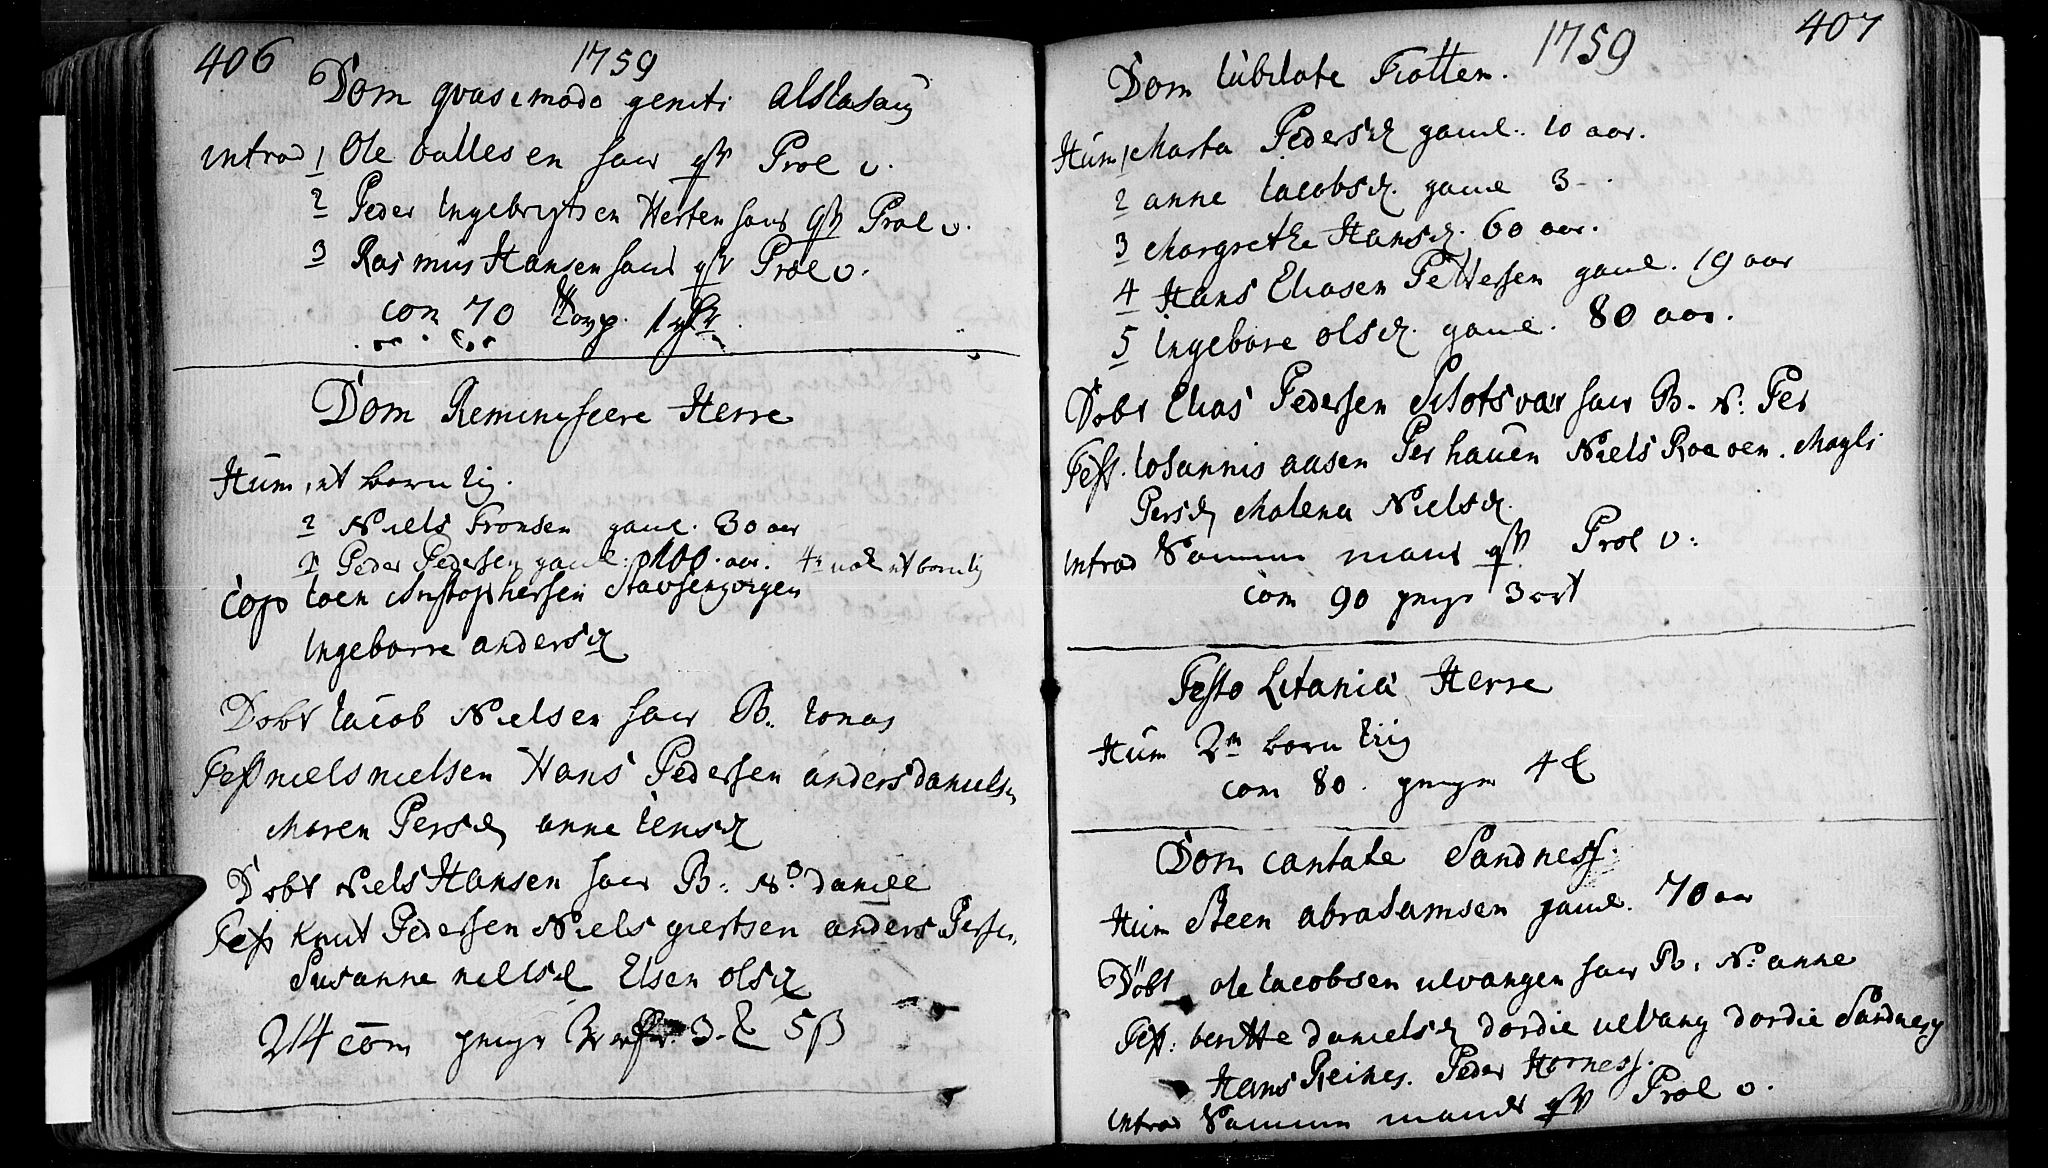 406
1759
Dom quasimodo geniti alstahaug
introd 1 Ole ballesen haver qv Prol u.
2 Peder Ingebrigtsen Herten haver qv Prol u.
3 Rasmus Hansen haver qv Prol u.
com 70
Dom Reminiscere Herre
Hum 1 et barn lig.
2 Niels Fronsen gaml. 30 aar
3 Peder Pedersen gaml: 100. aar. 4 nok et barn lig
Cop Ioen Christophersen
Ingeborre andersd
Dobt Iacob Nielsen haver B. Ionas
Test niels nielsen Hans Pedersen anders daniels
Maren Persd anne Iensd
Dobt Niels Hansen haver B: No daniel
Test Knut Pedersen Niels giertsen anders Persen
Susanne nielsd Elsen olsd
214 com penge 3 5 β
407
1759
Dom Iubilate Tiotten.
Hum 1 Marta Pedersd gaml. 10 aar.
2 anne Iacobsd. gaml 3 - .
3 Margrethe Hansd. 60 aar.
4 Hans Eliasen Pettersen gaml. 19 aar
5 Ingebore olsd gaml. 80 aar.
Dobt Elias Pedersen haver B. N: Per
Test. Iohannis aasen Per hauen Niels Roeoen. Magli
Persd Malena Nielsd.
introd Samme mand qv Prol u.
com 90 penge 3 ort
Festo Litania Herre
Hum 2 barn liig
com 80. penge 4
Dom cantate Sandness.
Hum Steen abrahamsen gaml. 70 aar
Döbt ole Iacobsen ulvangen haver B. N: anne
Test: beritte danielsd dordie ulvang dordie Sandness
Hans Reines. Peder Horness.
introd Samme mands qv Prol u.